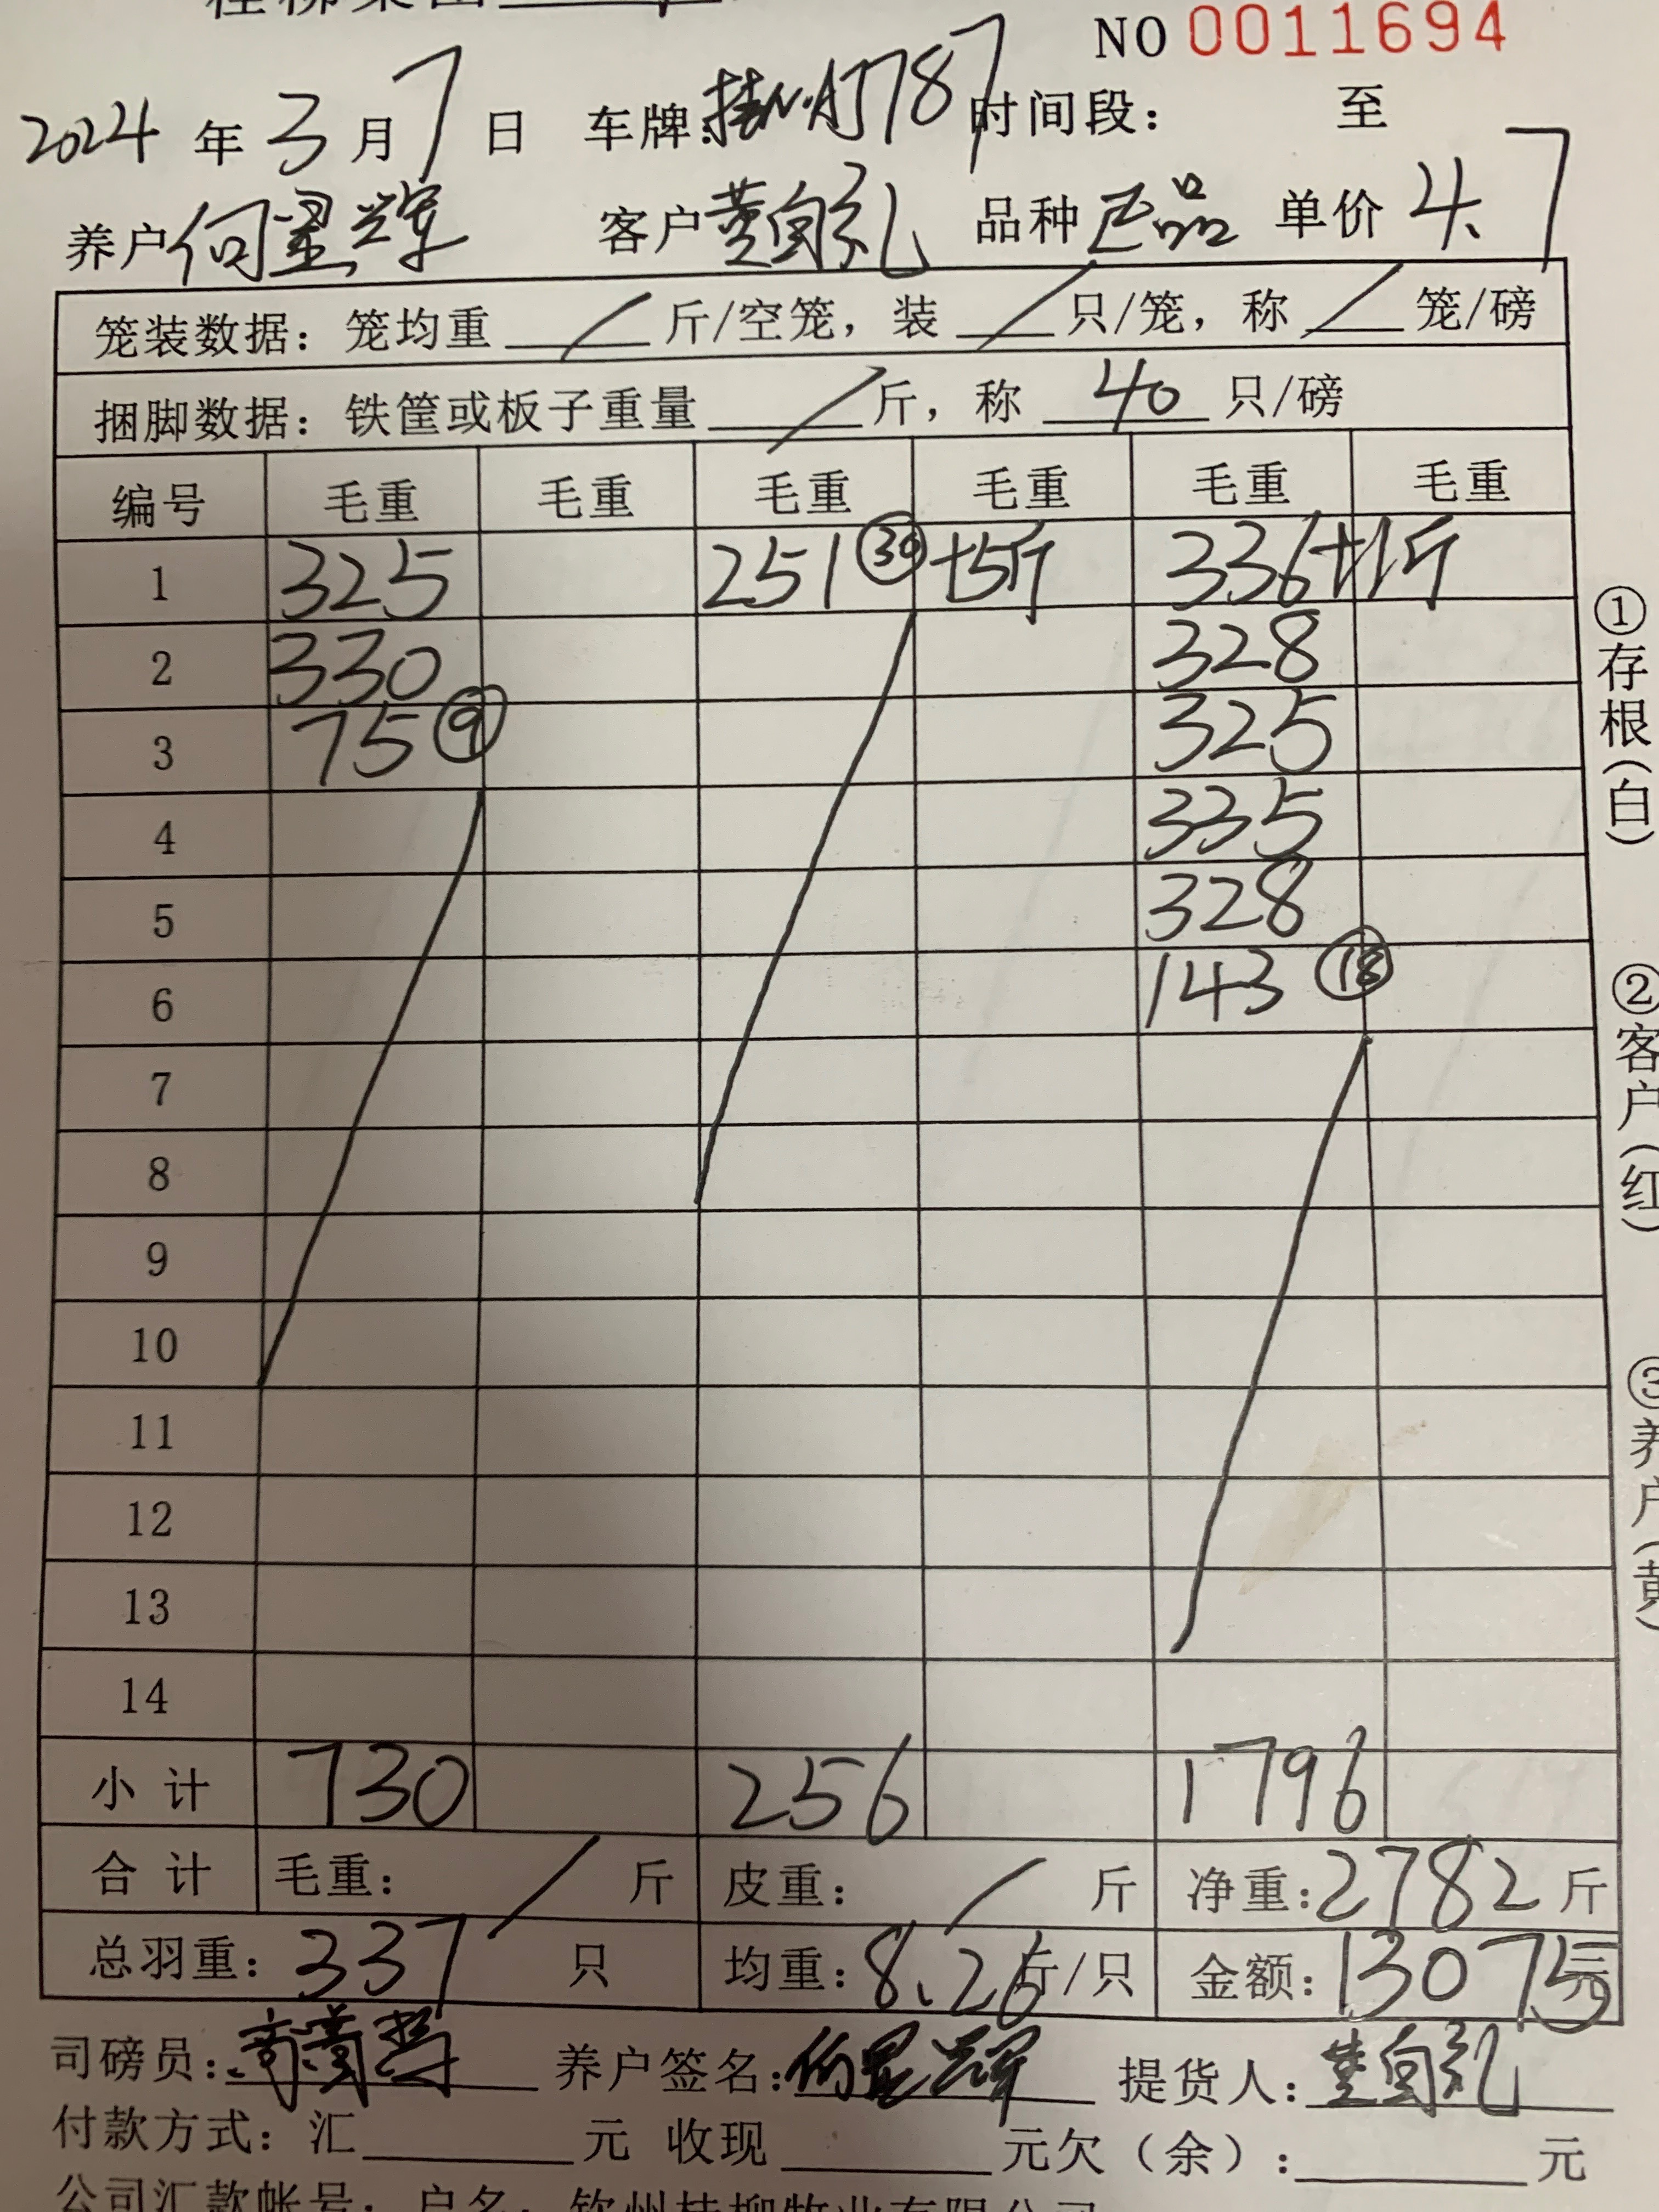 NO 0011694
2024 年 3 月 7 日 车牌: 787 时间段: 至
养户 何星辉 客户 黄向礼 品种 正品 单价 4.7
笼装数据: 笼均重 / 斤/空笼, 装 / 只/笼, 称 / 笼/磅
捆脚数据: 铁筐或板子重量 / 斤, 称 40 只/磅
编号 毛重 毛重 毛重 毛重 毛重 毛重
1 325 251 ㉚ +5斤 336 +1斤
2 330 328
3 75 ⑨ 325
4 335
5 328
6 143 ⑱
7
8
9
10
11
12
13
14
小计 730 256 1796
合计 毛重: / 斤 皮重: / 斤 净重: 2782 斤
总羽重: 337 只 均重: 8.26 斤/只 金额: 13075元
司磅员: 养户签名: 何星辉 提货人: 黄向礼
付款方式: 汇 元 收现 元欠(余): 元
公司汇款帐号: 户名: 钦州桂柳牧业有限公司
①存根(白)
②客户(红)
③养户(黄)